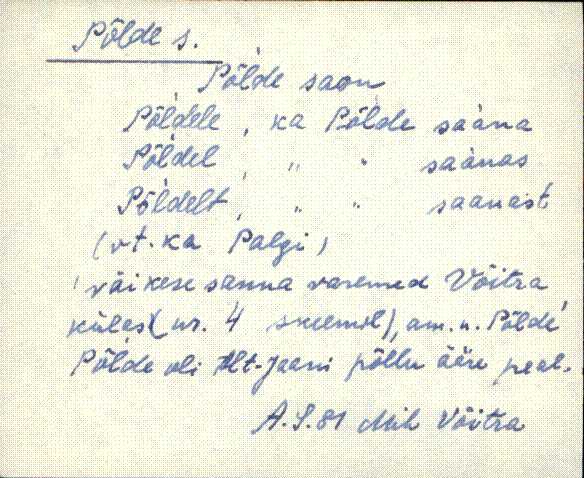 Põlde s.
Põlde saon
Põldele, ka Põlde saàna
Põldel, " " saànas
Põldelt, " " saanast
(vt. ka Palgi)
väikese sauna varemed Võitra
küles (nr. 4 skeemil), am. n. Põlde
Põlde oli Alt-Jaani põllu ääre peal.
A.S. 81 Mih Võitra